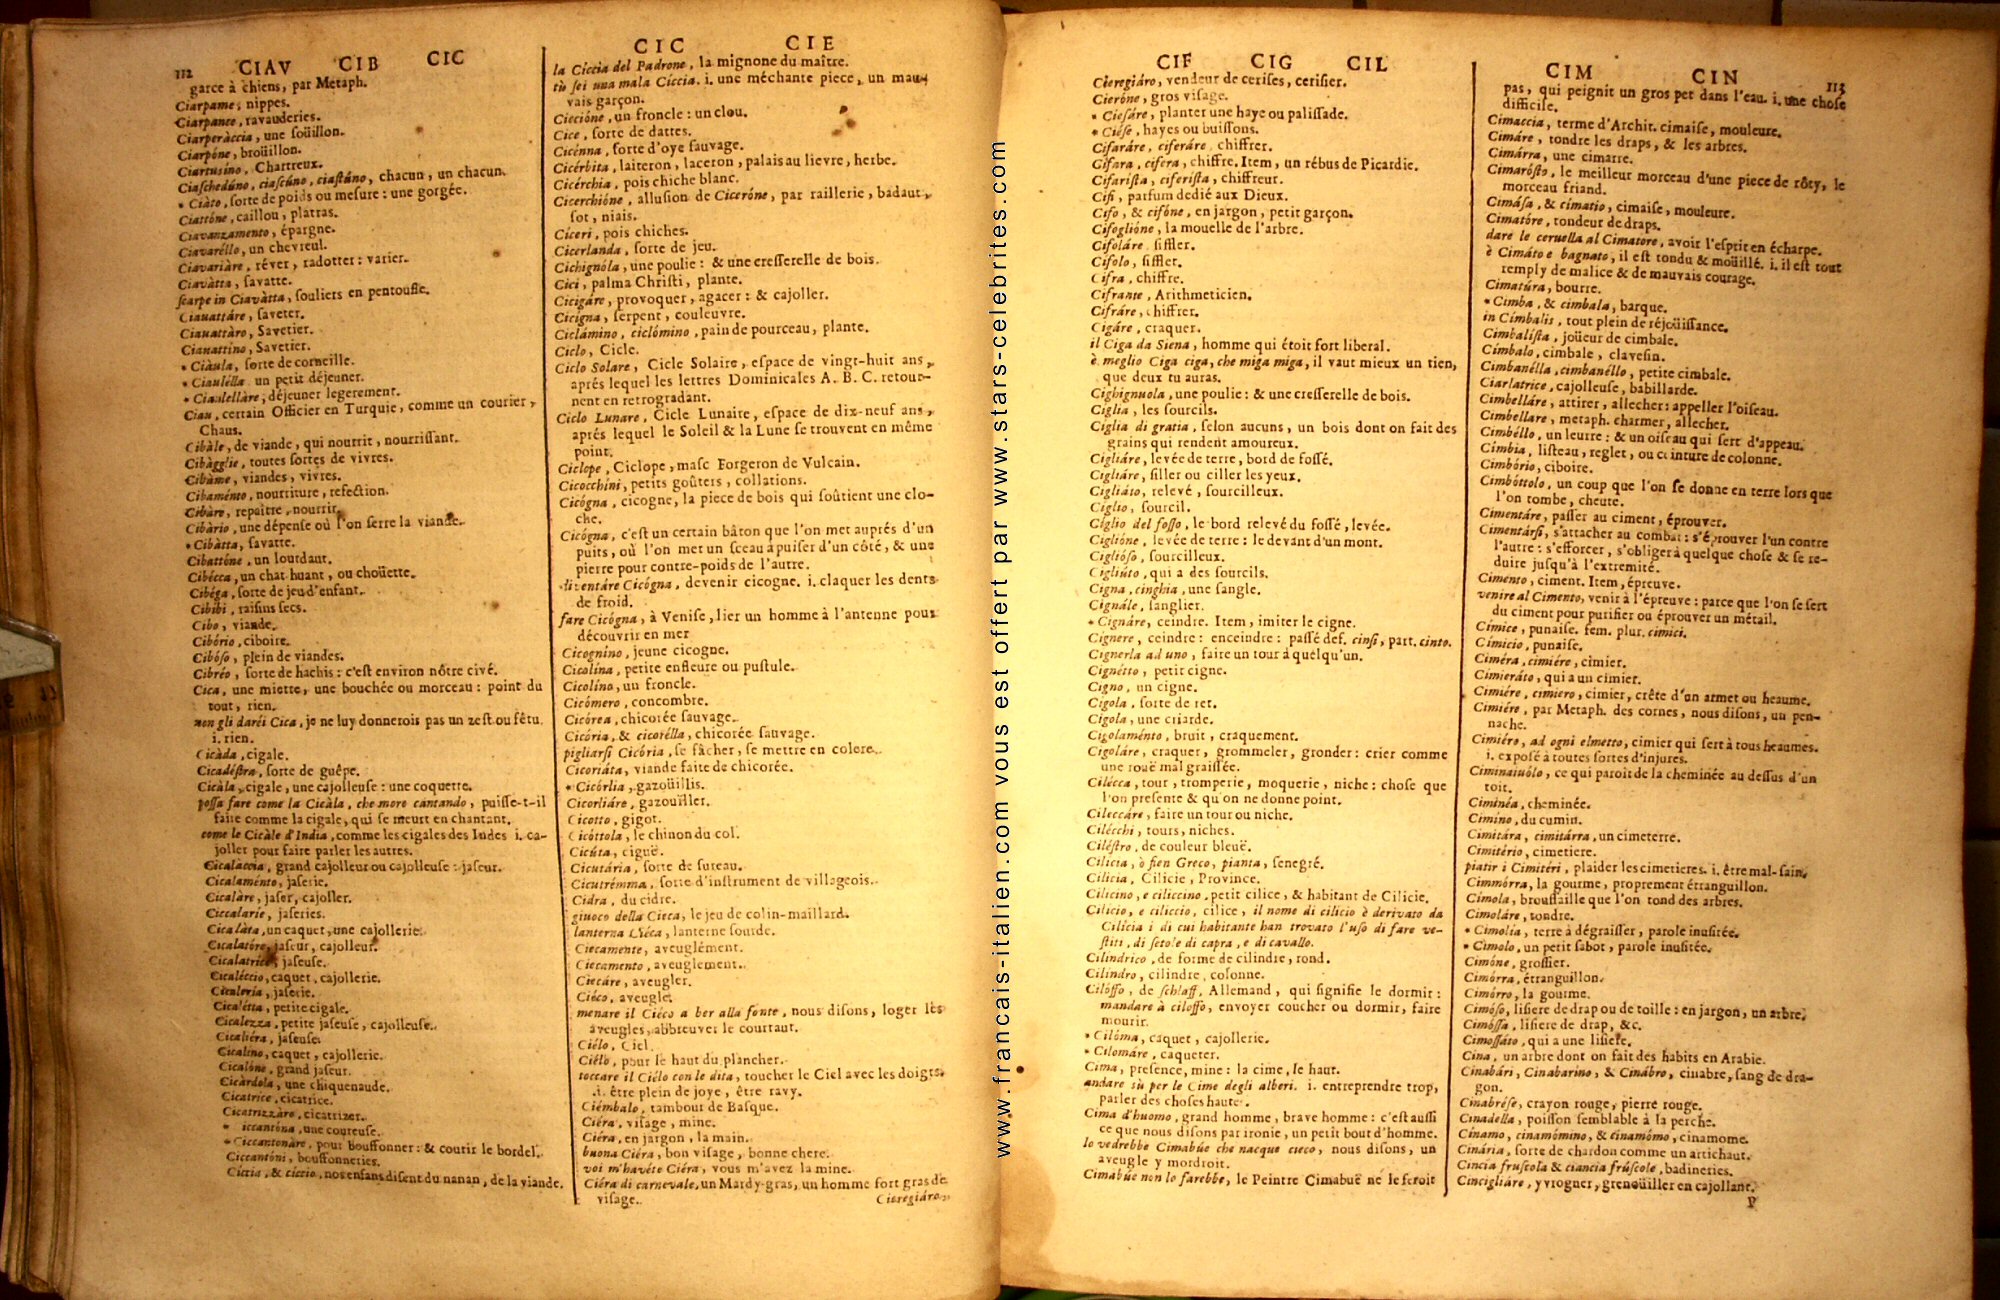 112 CIAV CIB CIC
garce à chiens, par Metaph.
Ciarpame, nippes.
Ciarpance, ravauderies.
Ciarperàccia, une soüillon.
Ciarpóne, broüillon.
Ciartusino, Chartreux.
Ciaschedúno, ciascúno, ciastúno, chacun, un chacun.
* Ciàto, sorte de poids ou mesure : une gorgée.
Ciattóne, caillou, platras.
Ciavanzamento, épargne.
Ciavaréllo, un chevreul.
Ciavariàre, réver, radotter : varier.
Ciavàtta, savatte.
scarpe in Ciavàtta, souliers en pentoufle.
Ciauattáre, saveter.
Ciauattàro, Savetier.
Ciauattino, Savetier.
* Ciàula, sorte de corneille.
* Ciaulélla un petit déjeuner.
* Ciaulellàre, déjeuner legerement.
Ciau, certain Officier en Turquie, comme un courier,
Chaus.
Cibàle, de viande, qui nourrit, nourrissant.
Cibàgglie, toutes sortes de vivres.
Cibàme, viandes, vivres.
Cibaménto, nourriture, refection.
Cibàre, repaître, nourrir.
Cibàrio, une dépense où l'on serre la viande.
* Cibàtta, savatte.
Cibattóne, un lourdaut.
Cibécca, un chat huant, ou choüette.
Cibéga, sorte de jeu d'enfant.
Cibibi, raisins secs.
Cibo, viande.
Cibório, ciboire.
Cibóso, plein de viandes.
Cibréo, sorte de hachis : c'est environ nôtre civé.
Cica, une miette, une bouchée ou morceau : point du
tout, rien.
non gli daréi Cica, je ne luy donnerois pas un zest ou fétu.
i. rien.
Cicàda, cigale.
Cicadéstra, sorte de guêpe.
Cicàla, cigale, une cajolleuse : une coquette.
possa fare come la Cicàla, che more cantando, puisse-t-il
faire comme la cigale, qui se meurt en chantant.
come le Cicàle d'India, comme les cigales des Indes i. ca-
joller pour faire parler les autres.
Cicalàccia, grand cajolleur ou cajolleuse : jaseur.
Cicalaménto, jaserie.
Cicalàre, jaser, cajoller.
Ciccalarie, jaseries.
Cicalàta, un caquet, une cajollerie.
Cicalatóre, jaseur, cajolleur.
Cicalatrice, jaseuse.
Cicaléccio, caquet, cajollerie.
Cicaleria, jaserie.
Cicalétta, petite cigale.
Cicalezza, petite jaseuse, cajolleuse.
Cicaliéra, jaseuse.
Cicalino, caquet, cajollerie.
Cicalóne, grand jaseur.
Cicàrdola, une chiquenaude.
Cicatrice, cicatrice.
Cicatrizzàre, cicatrizer.
* iccantóna, une coureuse.
* Ciccantonàre, pour bouffonner : & courir le bordel.
Ciccantóni, bouffonneries.
Ciccia, & ciccio, nos enfans disent du nanan, de la viande.
CIC CIE
la Ciccia del Padrone, la mignone du maître.
tù sei una mala Ciccia. i. une méchante piece, un mau-
vais garçon.
Ciccióne, un froncle : un clou.
Cice, sorte de dattes.
Cicénna, sorte d'oye sauvage.
Cicérbita, laiteron, laceron, palais au lievre, herbe.
Cicérchia, pois chiche blanc.
Cicerchióne, allusion de Ciceróne, par raillerie, badaut,
sot, niais.
Ciceri, pois chiches.
Cicerlanda, sorte de jeu.
Cichignóla, une poulie : & une cresserelle de bois.
Cici, palma Christi, plante.
Cicigáre, provoquer, agacer : & cajoller.
Cicigna, serpent, couleuvre.
Ciclámino, ciclómino, pain de pourceau, plante.
Ciclo, Cicle.
Ciclo Solare, Cicle Solaire, espace de vingt-huit ans,
aprés lequel les lettres Dominicales A. B. C. retour-
nent en retrogradant.
Ciclo Lunare, Cicle Lunaire, espace de dix-neuf ans,
aprés lequel le Soleil & la Lune se trouvent en même
point.
Ciclope, Ciclope, masc Forgeron de Vulcain.
Cicocchini, petits goûters, collations.
Cicógna, cicogne, la piece de bois qui soûtient une clo-
che.
Cicógna, c'est un certain bâton que l'on met auprés d'un
puits, où l'on met un sceau à puiser d'un côté, & une
pierre pour contre-poids de l'autre.
diventáre Cicógna, devenir cicogne. i. claquer les dents
de froid.
fare Cicógna, à Venise, lier un homme à l'antenne pour
découvrir en mer
Cicognino, jeune cicogne.
Cicolína, petite enfleure ou pustule.
Cicolíno, un froncle.
Cicómero, concombre.
Cicórea, chicorée sauvage.
Cicória, & cicorélla, chicorée sauvage.
pigliarsi Cicória, se fâcher, se mettre en colere.
Cicoriáta, viande faite de chicorée.
* Cicórlia, gazoüillis.
Cicorliáre, gazouiller.
Cicotto, gigot.
Cicóttola, le chinon du col.
Cicúta, ciguë.
Cicutária, sorte de sureau.
Cicutrémma, sorte d'instrument de villageois.
Cidra, du cidre.
giuoco della Cieca, le jeu de colin-maillard.
lanterna Ciéca, lanterne sourde.
Ciecamente, aveuglément.
Ciecamento, aveuglement.
Ciecáre, aveugler.
Ciéco, aveugle.
menare il Ciéco a ber alla fonte, nous disons, loger les
aveugles, abbreuver le courtaut.
Ciélo, Ciel.
Ciélo, pour le haut du plancher.
toccare il Ciélo con le dita, toucher le Ciel avec les doigts.
i. être plein de joye, être ravy.
Ciémbalo, tambour de Basque.
Ciéra, visage, mine.
Ciéra, en jargon, la main.
buona Ciéra, bon visage, bonne chere.
voi m'havéte Ciéra, vous m'avez la mine.
Ciéra di carnevale, un Mardy-gras, un homme fort gras de
visage.
Cieregiáro,
www.francais-italien.com vous est offert par www.stars-celebrites.com
CIF CIG CIL
Cieregiáro, vendeur de cerises, cerisier.
Cieróne, gros visage.
* Ciesáre, planter une haye ou palissade.
* Ciése, hayes ou buissons.
Cifaráre, ciferáre, chiffrer.
Cifara, cifera, chiffre. Item, un rébus de Picardie.
Cifarista, ciferista, chiffreur.
Cifi, parfum dedié aux Dieux.
Cifo, & cifóne, en jargon, petit garçon.
Cifoglióne, la mouelle de l'arbre.
Cifoláre siffler.
Cifolo, siffler.
Cifra, chiffre.
Cifrante, Arithmeticien.
Cifráre, chiffrer.
Cigáre, craquer.
il Ciga da Siena, homme qui étoit fort liberal.
è meglio Ciga ciga, che miga miga, il vaut mieux un tien,
que deux tu auras.
Cighignuola, une poulie : & une cresserelle de bois.
Ciglia, les sourcils.
Ciglia di gratia, selon aucuns, un bois dont on fait des
grains qui rendent amoureux.
Cigliáre, levée de terre, bord de fossé.
Cigliáre, siller ou ciller les yeux.
Cigliáto, relevé, sourcilleux.
Ciglio, sourcil.
Ciglio del fosso, le bord relevé du fossé, levée.
Ciglióne, levée de terre : le devant d'un mont.
Ciglióso, sourcilleux.
Cigliúto, qui a des sourcils.
Cigna, cinghia, une sangle.
Cignále, sanglier.
* Cignáre, ceindre. Item, imiter le cigne.
Cignere, ceindre : enceindre : passé def. cinsi, part. cinto.
Cignerla ad uno, faire un tour à quelqu'un.
Cignétto, petit cigne.
Cigno, un cigne.
Cigola, sorte de ret.
Cigola, une criarde.
Cigolaménto, bruit, craquement.
Cigoláre, craquer, grommeler, gronder : crier comme
une rouë mal graissée.
Cilécca, tour, tromperie, moquerie, niche : chose que
l'on presente & qu'on ne donne point.
Cileccáre, faire un tour ou niche.
Cilécchi, tours, niches.
Ciléstro, de couleur bleuë.
Cilicia, ò fien Greco, pianta, senegré.
Cilicia, Cilicie, Province.
Cilicino, e ciliccino, petit cilice, & habitant de Cilicie.
Cilicio, e ciliccio, cilice, il nome di cilicio è derivato da
Cilicia i di cui habitante han trovato l'uso di fare ve-
stiti, di setole di capra, e di cavallo.
Cilindrico, de forme de cilindre, rond.
Cilindro, cilindre, colonne.
Cilóffo, de schlaff, Allemand, qui signifie le dormir :
mandare à ciloffo, envoyer coucher ou dormir, faire
mourir.
* Cilóma, caquet, cajollerie.
* Cilomáre, caqueter.
Cima, presence, mine : la cime, le haut.
andare sù per le Cime degli alberi. i. entreprendre trop,
parler des choses hautes.
Cima d'huomo, grand homme, brave homme : c'est aussi
ce que nous disons par ironie, un petit bout d'homme.
lo vedrebbe Cimabúe che nacque cieco, nous disons, un
aveugle y mordroit.
Cimabúe non lo farebbe, le Peintre Cimabuë ne le feroit
CIM CIN 113
pas, qui peignit un gros pet dans l'eau. i. une chose
difficile.
Cimaccia, terme d'Archit. cimaise, mouleure.
Cimáre, tondre les draps, & les arbres.
Cimárra, une cimarre.
Cimarósto, le meilleur morceau d'une piece de rôty, le
morceau friand.
Cimása, & cimatio, cimaise, mouleure.
Cimatóre, tondeur de draps.
dare le ceruella al Cimatore, avoir l'esprit en écharpe.
è Cimáto e bagnato, il est tondu & moüillé. i. il est tout
remply de malice & de mauvais courage.
Cimatúra, bourre.
* Cimba, & cimbala, barque.
in Cimbalis, tout plein de réjoüissance.
Cimbalista, joüeur de cimbale.
Cimbalo, cimbale, clavesin.
Cimbanélla, cimbanéllo, petite cimbale.
Ciarlatrice, cajolleuse, babillarde.
Cimbelláre, attirer, allecher : appeller l'oiseau.
Cimbellare, metaph. charmer, allecher.
Cimbéllo, un leurre : & un oiseau qui sert d'appeau.
Cimbia, listeau, reglet, ou ceinture de colonne.
Cimbório, ciboire.
Cimbóttolo, un coup que l'on se donne en terre lors que
l'on tombe, cheute.
Cimentáre, passer au ciment, éprouver.
Cimentársi, s'attacher au combat : s'éprouver l'un contre
l'autre : s'efforcer, s'obliger à quelque chose & se re-
duire jusqu'à l'extremité.
Cimento, ciment. Item, épreuve.
venire al Cimento, venir à l'épreuve : parce que l'on se sert
du ciment pour purifier ou éprouver un métail.
Cimice, punaise. fem. plur. cimici.
Cimicio, punaise.
Ciméra, cimiére, cimier.
Cimieráto, qui a un cimier.
Cimiére, cimiero, cimier, crête d'un armet ou heaume.
Cimiére, par Metaph. des cornes, nous disons, un pen-
nache.
Cimiéro, ad ogni elmetto, cimier qui sert à tous heaumes.
i. exposé à toutes sortes d'injures.
Ciminaiuólo, ce qui paroit de la cheminée au dessus d'un
toit.
Ciminéa, cheminée.
Cimino, du cumin.
Cimitára, cimitárra, un cimeterre.
Cimitério, cimetiere.
piatir i Cimitéri, plaider les cimetieres. i. être mal-sain.
Cimmórra, la gourme, proprement étranguillon.
Cimola, broussaille que l'on tond des arbres.
Cimoláre, tondre.
* Cimolia, terre à dégraisser, parole inusitée.
* Cimolo, un petit sabot, parole inusitée.
Cimóne, grossier.
Cimórra, étranguillon.
Cimórro, la gourme.
Cimóso, lisiere de drap ou de toille : en jargon, un arbre.
Cimóssa, lisiere de drap, &c.
Cimossáto, qui a une lisiere.
Cina, un arbre dont on fait des habits en Arabie.
Cinabári, Cinabarino, & Cinábro, cinabre, sang de dra-
gon.
Cinabrése, crayon rouge, pierre rouge.
Cinadella, poisson semblable à la perche.
Cinamo, cinamómino, & cinamómo, cinamome.
Cinária, sorte de chardon comme un artichaut.
Cincia fruscola & ciancia frúscole, badineries.
Cincigliáre, yvrogner, grenoüiller en cajollant.
P